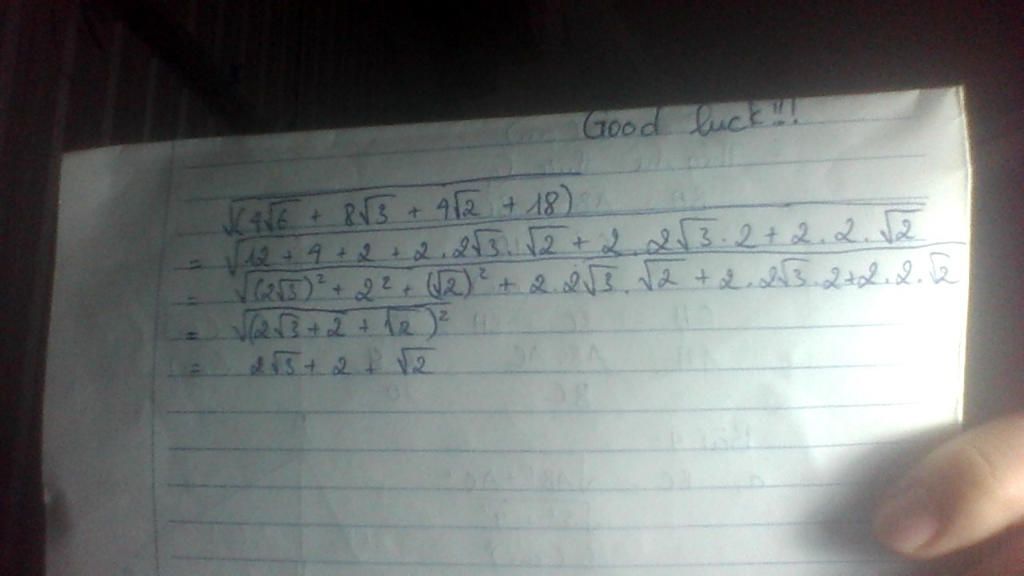 Good luck!!!
√(4√6 + 8√3 + 4√2 + 18)
= √12 + 4 + 2 + 2.2√3.√2 + 2.2√3.2 + 2.2.√2
= √(2√3)² + 2² + (√2)² + 2.2√3.√2 + 2.2√3.2+2.2.√2
= √(2√3+2+√2)²
= 2√3+2+√2